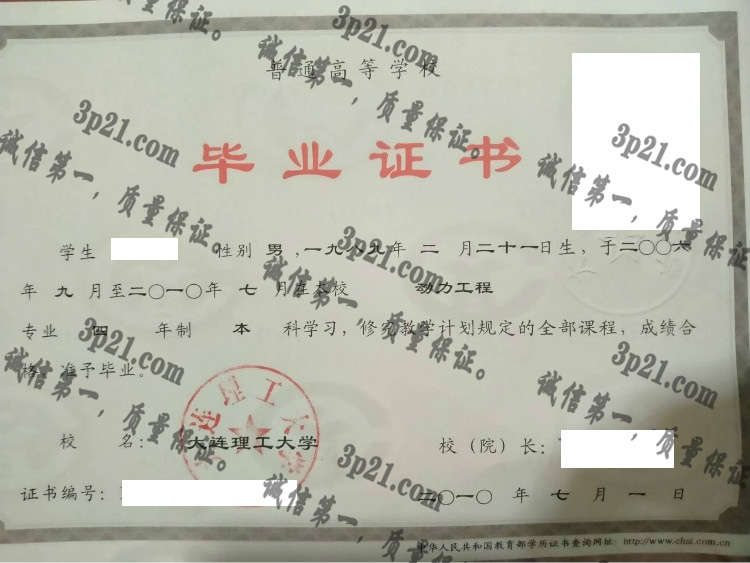 普通高等学校
毕业证书
学生 性别 男 ,一九八九年 二 月二十一日生, 于二〇〇六
年 九 月至二〇一〇年 七 月在本校 动力工程
专业 四 年制 本 科学习, 修完教学计划规定的全部课程, 成绩合
格, 准予毕业。
校 名: 大连理工大学 校（院）长:
证书编号: 二〇一〇 年 七 月 一 日
中华人民共和国教育部学历证书查询网址: http://www.chsi.com.cn
大连理工大学
3p21.com
诚信第一，质量保证。
3p21.com
诚信第一，质量保证。
3p21.com
诚信第一，质量保证。
3p21.com
诚信第一，质量保证。
3p21.com
诚信第一，质量保证。
3p21.com
诚信第一，质量保证。
3p21.com
诚信第一，质量保证。
3p21.com
诚信第一，质量保证。